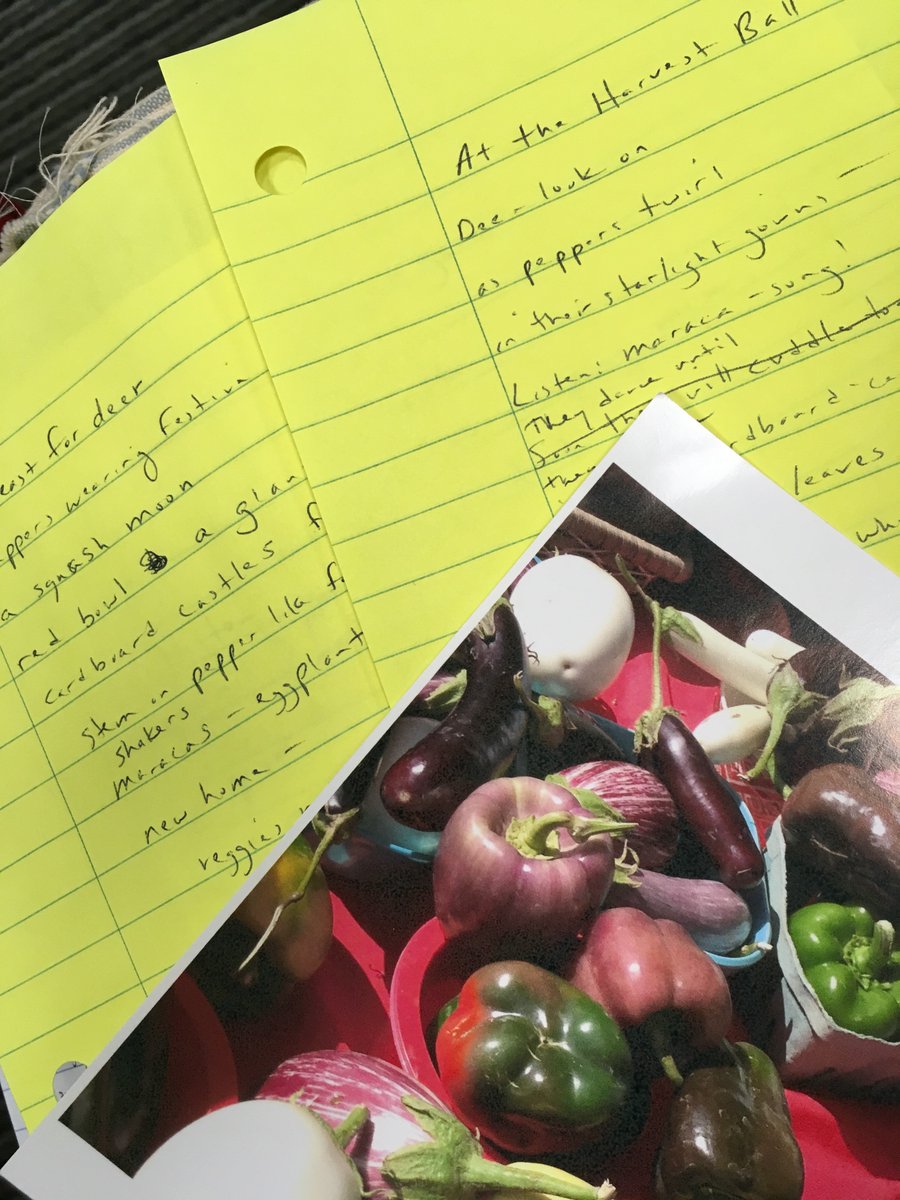 At the Harvest Ball
Deer look on
as peppers twirl
in their starlight gowns —
Listen: maraca-song!
They dance until
Soon they will cuddle to
they
rdboard-ca
leaves
wh
east for deer
ppers wearing festiv
a squash moon
red bowl a gian
cardboard castles f
stem on pepper like f
shakers
maracas - eggplant
new home -
veggies